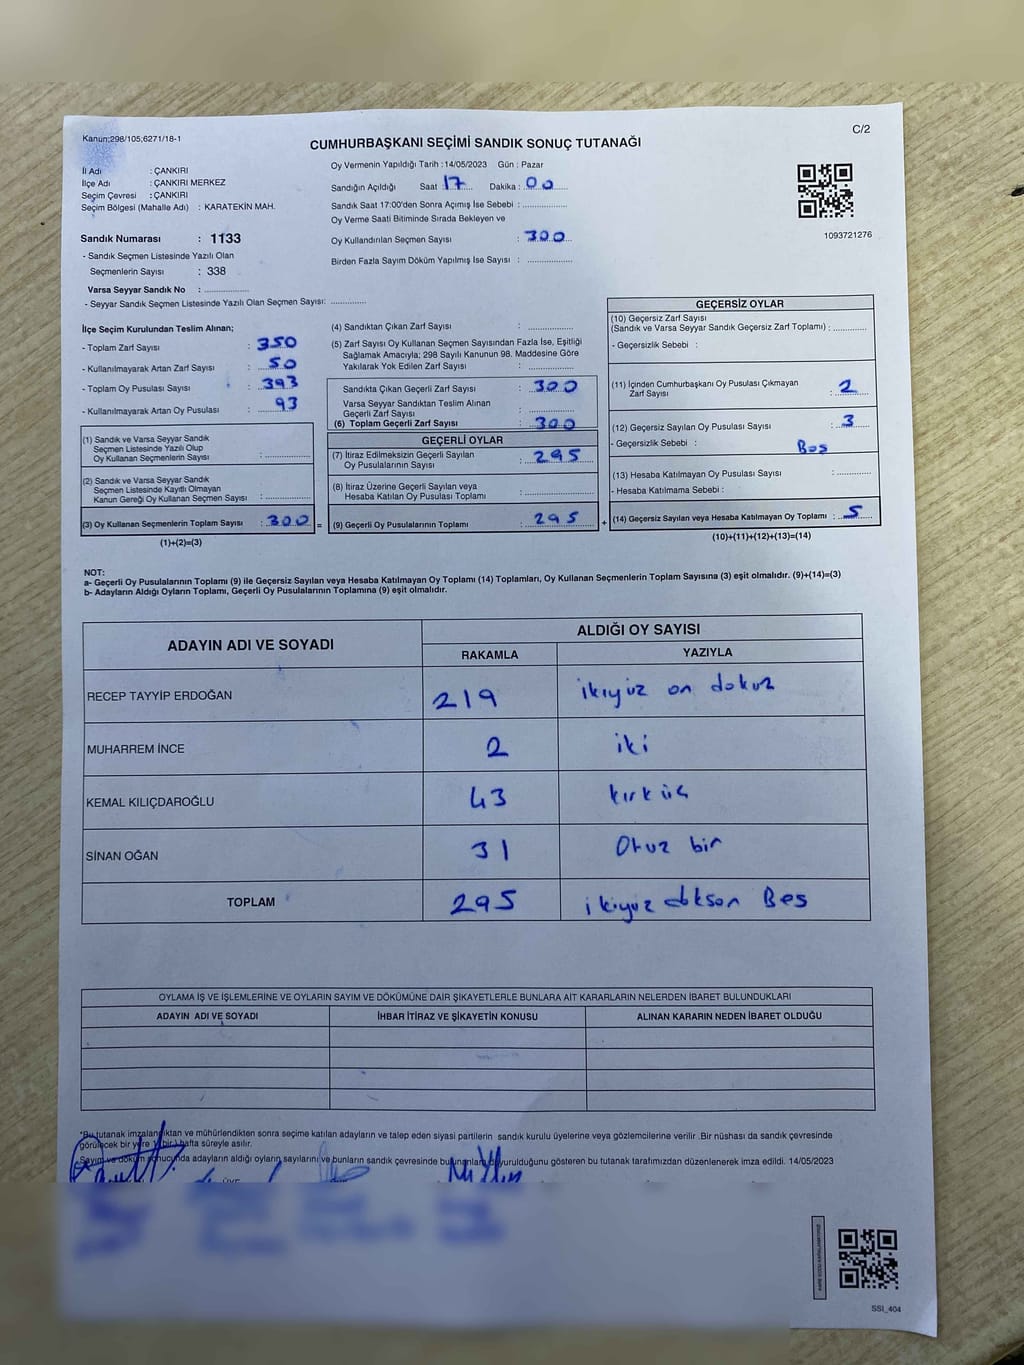 Kanun;298/105;6271/18-1
C/2
CUMHURBAŞKANI SEÇİMİ SANDIK SONUÇ TUTANAĞI
İl Adı : ÇANKIRI
İlçe Adı : ÇANKIRI MERKEZ
Seçim Çevresi : ÇANKIRI
Seçim Bölgesi (Mahalle Adı) : KARATEKİN MAH.
Sandık Numarası : 1133
- Sandık Seçmen Listesinde Yazılı Olan
Seçmenlerin Sayısı : 338
Varsa Seyyar Sandık No : ....................
- Seyyar Sandık Seçmen Listesinde Yazılı Olan Seçmen Sayısı: ...............
Oy Vermenin Yapıldığı Tarih : 14/05/2023 Gün : Pazar
Sandığın Açıldığı Saat 17 Dakika : 00
Sandık Saat 17:00'den Sonra Açımış İse Sebebi : ....................
Oy Verme Saati Bitiminde Sırada Bekleyen ve
Oy Kullandırılan Seçmen Sayısı : 300
Birden Fazla Sayım Döküm Yapılmış İse Sayısı : ....................
1093721276
İlçe Seçim Kurulundan Teslim Alınan;
- Toplam Zarf Sayısı : 350
- Kullanılmayarak Artan Zarf Sayısı : 50
- Toplam Oy Pusulası Sayısı : 393
- Kullanılmayarak Artan Oy Pusulası : 93
(1) Sandık ve Varsa Seyyar Sandık
Seçmen Listesinde Yazılı Olup
Oy Kullanan Seçmenlerin Sayısı : ....................
(2) Sandık ve Varsa Seyyar Sandık
Seçmen Listesinde Kayıtlı Olmayan
Kanun Gereği Oy Kullanan Seçmen Sayısı : ....................
(3) Oy Kullanan Seçmenlerin Toplam Sayısı : 300 =
(1)+(2)=(3)
(4) Sandıktan Çıkan Zarf Sayısı : ....................
(5) Zarf Sayısı Oy Kullanan Seçmen Sayısından Fazla İse, Eşitliği
Sağlamak Amacıyla; 298 Sayılı Kanunun 98. Maddesine Göre
Yakılarak Yok Edilen Zarf Sayısı : ....................
Sandıkta Çıkan Geçerli Zarf Sayısı : 300
Varsa Seyyar Sandıktan Teslim Alınan
Geçerli Zarf Sayısı : ....................
(6) Toplam Geçerli Zarf Sayısı : 300
GEÇERLİ OYLAR
(7) İtiraz Edilmeksizin Geçerli Sayılan
Oy Pusulalarının Sayısı : 295
(8) İtiraz Üzerine Geçerli Sayılan veya
Hesaba Katılan Oy Pusulası Toplamı : ....................
(9) Geçerli Oy Pusulalarının Toplamı : 295 +
GEÇERSİZ OYLAR
(10) Geçersiz Zarf Sayısı
(Sandık ve Varsa Seyyar Sandık Geçersiz Zarf Toplamı) : ...............
- Geçersizlik Sebebi :
(11) İçinden Cumhurbaşkanı Oy Pusulası Çıkmayan
Zarf Sayısı : 2
(12) Geçersiz Sayılan Oy Pusulası Sayısı : 3
- Geçersizlik Sebebi : Bos
(13) Hesaba Katılmayan Oy Pusulası Sayısı : ...............
- Hesaba Katılmama Sebebi :
(14) Geçersiz Sayılan veya Hesaba Katılmayan Oy Toplamı : 5
(10)+(11)+(12)+(13)=(14)
NOT:
a- Geçerli Oy Pusulalarının Toplamı (9) ile Geçersiz Sayılan veya Hesaba Katılmayan Oy Toplamı (14) Toplamları, Oy Kullanan Seçmenlerin Toplam Sayısına (3) eşit olmalıdır. (9)+(14)=(3)
b- Adayların Aldığı Oyların Toplamı, Geçerli Oy Pusulalarının Toplamına (9) eşit olmalıdır.
ADAYIN ADI VE SOYADI
ALDIĞI OY SAYISI
RAKAMLA YAZIYLA
RECEP TAYYİP ERDOĞAN 219 ikiyüz on dokuz
MUHARREM İNCE 2 iki
KEMAL KILIÇDAROĞLU 43 kırk üç
SİNAN OĞAN 31 Otuz bir
TOPLAM 295 ikiyüz doksan Bes
OYLAMA İŞ VE İŞLEMLERİNE VE OYLARIN SAYIM VE DÖKÜMÜNE DAİR ŞİKAYETLERLE BUNLARA AİT KARARLARIN NELERDEN İBARET BULUNDUKLARI
ADAYIN ADI VE SOYADI İHBAR İTİRAZ VE ŞİKAYETİN KONUSU ALINAN KARARIN NEDEN İBARET OLDUĞU
*Bu tutanak imzalandıktan ve mühürlendikten sonra seçime katılan adayların ve talep eden siyasi partilerin sandık kurulu üyelerine veya gözlemcilerine verilir .Bir nüshası da sandık çevresinde
görülecek bir yere 1( bir ) hafta süreyle asılır.
Sayım ve döküm sonucunda adayların aldığı oyların sayılarını ve bunların sandık çevresinde duyurulduğunu gösteren bu tutanak tarafımızdan düzenlenerek imza edildi. 14/05/2023
ÜYE
SSI_404